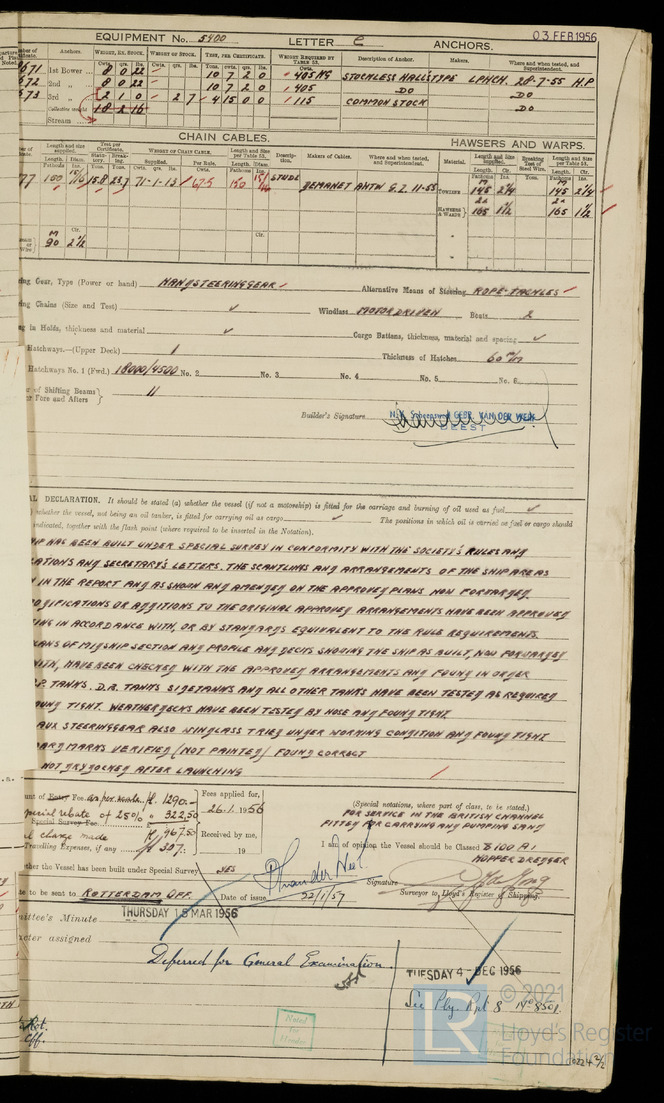 EQUIPMENT No. 5400 LETTER e ANCHORS. 03 FEB 1956
Anchors. Weight, Ex. Stock. Weight of Stock. Test, per Certificate. Weight Required by Table 53. Description of Anchor. Makers. Where and when tested, and Superintendent.
Cwts. qrs. lbs. Cwts. qrs. lbs. Tons. cwts. qrs. lbs. Cwts.
671 1st Bower 8 0 22 10 7 2 0 405 KG STOCKLESS HALL'S TYPE LPHCH. 28-7-55 H.P
72 2nd „ 8 0 22 10 7 2 0 405 DO DO
.73 3rd „ 2 1 0 2 7 4 15 0 0 115 COMMON STOCK DO
Collective weight 18 2 16
Stream
CHAIN CABLES. HAWSERS AND WARPS.
Length and size supplied. Test per Certificate. Weight of Chain Cable. Length and size per Table 53. Description. Makers of Cables. Where and when tested, and Superintendent. Material. Length and Size supplied. Breaking Test of Steel Wire. Length and Size per Table 53.
Length. Diam. Statutory. Breaking. Supplied. Per Rule. Length. Diam.
Fathoms Ins. Tons. Tons. Cwts. Fathoms Ins.
77 150 15/16 15.8 23.7 71-1-13 67.5 150 15/16 STUD GEMANET ANTW G.Z. 11-55 Towline 145 2¼ 145 2¼
Hawsers & Warps 165 1½ 165 1½
M Cir.
90 2½
Gear, Type (Power or hand) HAND STEERINGGEAR Alternative Means of Steering ROPE-TACKLES
Chains (Size and Test) ✓ Windlass MOTORDRIVEN Boats 2
in Holds, thickness and material ✓ Cargo Battens, thickness, material and spacing ✓
Hatchways.—(Upper Deck) 1 Thickness of Hatches 60 m/m
Hatchways No. 1 (Fwd.) 18000/4500 No. 2 No. 3 No. 4 No. 5 No. 6
of Shifting Beams or Fore and Afters } 11
Builder's Signature N.V. Scheepswerf GEBR. VAN DER WERF
DEEST
DECLARATION. It should be stated (a) whether the vessel (if not a motorship) is fitted for the carriage and burning of oil used as fuel ✓
whether the vessel, not being an oil tanker, is fitted for carrying oil as cargo ✓ The positions in which oil is carried as fuel or cargo should
indicated, together with the flash point (where required to be inserted in the Notation).
HAS BEEN BUILT UNDER SPECIAL SURVEY IN CONFORMITY WITH THE SOCIETY'S RULES AND
AND SECRETARY'S LETTERS. THE SCANTLINGS AND ARRANGEMENTS OF THE SHIP ARE AS
IN THE REPORT AND AS SHOWN AND AMENDED ON THE APPROVED PLANS NOW FORWARDED.
OR ADDITIONS TO THE ORIGINAL APPROVED ARRANGEMENTS HAVE BEEN APPROVED
IN ACCORDANCE WITH, OR BY STANDARDS EQUIVALENT TO THE RULE REQUIREMENTS.
OF MIDSHIP SECTION AND PROFILE AND DECKS SHOWING THE SHIP AS BUILT, NOW FORWARDED
HAVE BEEN CHECKED WITH THE APPROVED ARRANGEMENTS AND FOUND IN ORDER
TANKS. D.B. TANKS SIDETANKS AND ALL OTHER TANKS HAVE BEEN TESTED AS REQUIRED
TIGHT. WEATHERDECKS HAVE BEEN TESTED BY HOSE AND FOUND TIGHT.
AUX STEERINGGEAR ALSO WINDLASS TRIED UNDER WORKING CONDITION AND FOUND TIGHT
MARKS VERIFIED (NOT PAINTED) FOUND CORRECT
NOT DRYDOCKED AFTER LAUNCHING
Fee as per scale. fl. 1290.- Fees applied for,
Special rebate of 25% „ 322,50 26.1. 1956
Special Survey Fee.
charge made fl. 967.50 Received by me,
Travelling Expenses, if any fl 327.- 19
(Special notations, where part of class, to be stated.)
FOR SERVICE IN THE BRITISH CHANNEL
FITTED FOR CARRYING AND PUMPING SAND
I am of opinion the Vessel should be Classed 100 A1
HOPPER DREDGER
the Vessel has been built under Special Survey YES
Signature
Surveyor to Lloyd's Register of Shipping.
to be sent to ROTTERDAM OFF. Date of issue 22/1/57
Committee's Minute THURSDAY 15 MAR 1956
assigned
Deferred for General Examination
TUESDAY 4 - DEC 1956
See Rpt 8 No 8501.
Noted
Header
© 2021
LR Lloyd's Register
Foundation
0224 2/2